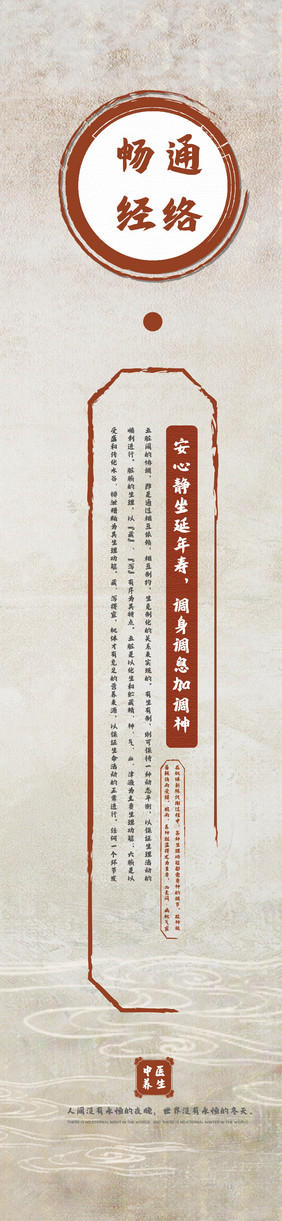 畅通
经络
安心静坐延年寿，调身调息加调神
在机体新陈代谢过程中，各种生理功能都需要神的调节，故神极
易耗伤而受损，因而，养神就显得尤为重要。《素问·病机气宜
五脏间的协调，即是通过相互依赖，相互制约，生克制化的关系来实现的。有生有制，则可保持一种动态平衡，以保证生理活动的
顺利进行。脏腑的生理，以『藏』、『泻』有序为其特点。五脏是以化生和贮藏精、神、气、血、津液为主要生理功能；六腑是以
受盛和传化水谷、排泄糟粕为其生理功能。藏、泻得宜，机体才有充足的营养来源，以保证生命活动的正常进行。任何一个环节发
中医
养生
人间没有永恒的夜晚，世界没有永恒的冬天。
THERE IS NO ETERNAL NIGHT IN THE WORLD, AND THERE IS NO ETERNAL WINTER IN THE WORLD.